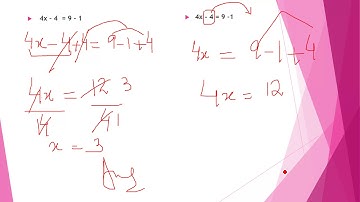 4x - 4 = 9 - 1
4x - 4 + 4 = 9 - 1 + 4
4x = 12 3
4 4 1
x = 3
Ans
4x - 4 = 9 - 1
4x = 9 - 1 + 4
4x = 12